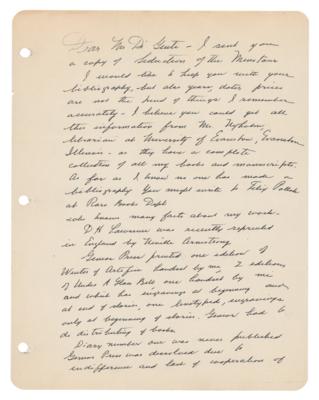 Dear Mr De Geste - I sent you
a copy of Seduction of the Minotaur
I would like to help you with your
bibliography, but also years, dates, prices
are not the kind of things I remember
accurately - I believe you could get all
this information from Mr Nyholm,
librarian at University of Evanston, Evanston
Illinois - as they have a complete
collection of all my books and manuscripts.
As far as I know no one has made a
bibliography You might write to Felix Pollak
at Rare Books Dept
who knows many facts about my work.
D H Lawrence was recently reprinted
in England by Neville Armstrong
Gemor Press printed one edition of
Winter of Artifice handset by me, 2 editions
of Under A Glass Bell one handset by me
and which has engravings at beginning and
at end of stories, one linotyped, engravings
only at beginning of stories. Gemor had to
do distributing of books.
Diary number one was never published
Gemor Press was dissolved due to
indifference and lack of cooperation of